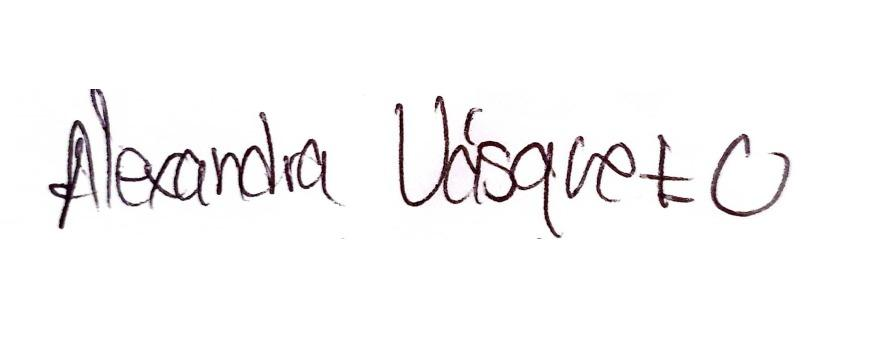 Alexandra Vásquez O